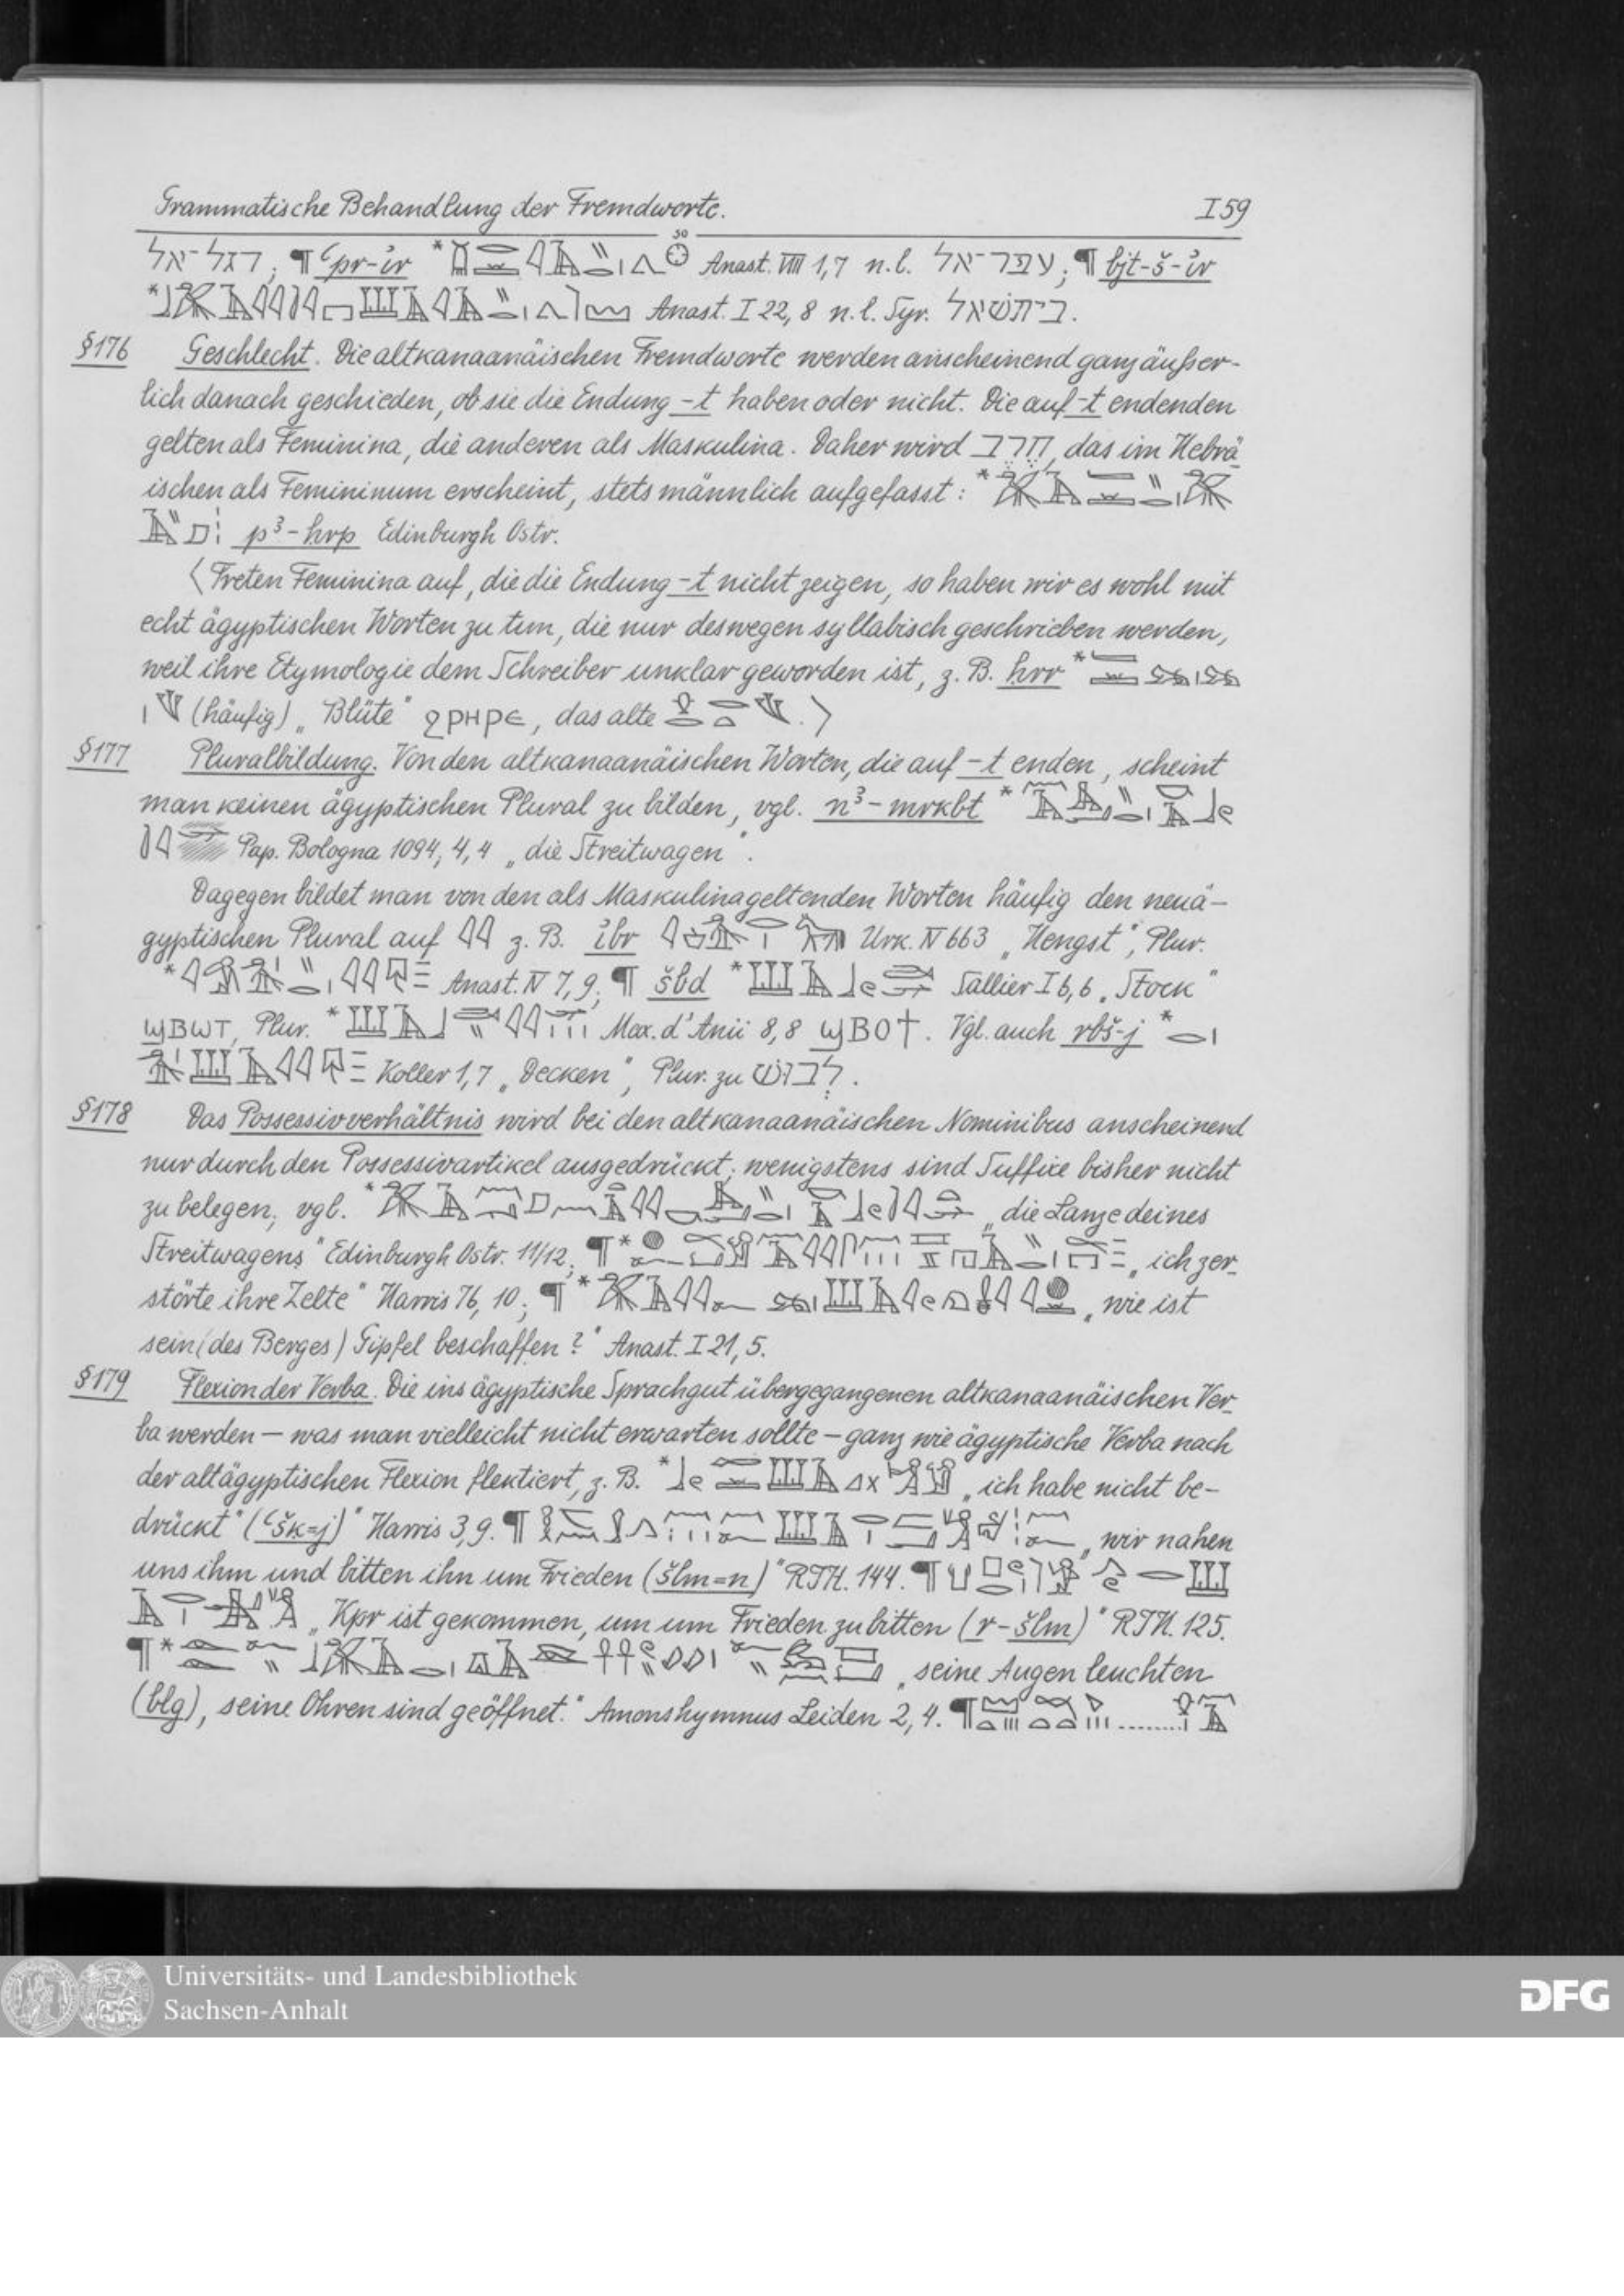 Grammatische Behandlung der Fremdworte. I 59
דגל-אל; ¶ ꜥpr-ỉr * Anast. VIII 1,7 n.l. עפר-אל; ¶ bjt-š-ỉr
* Anast. I 22, 8 n.l. Syr. ביתשׁאל.
§176 Geschlecht. Die altkanaanäischen Fremdworte werden anscheinend ganz äußer-
lich danach geschieden, ob sie die Endung -t haben oder nicht. Die auf -t endenden
gelten als Feminina, die anderen als Maskulina. Daher wird חרב, das im Hebrä
ischen als Femininum erscheint, stets männlich aufgefasst: *
p³-hrp Edinburgh Ostr.
〈Treten Feminina auf, die die Endung -t nicht zeigen, so haben wir es wohl mit
echt ägyptischen Worten zu tun, die nur deswegen syllabisch geschrieben werden,
weil ihre Etymologie dem Schreiber unklar geworden ist, z. B. hrr *
(häufig) „Blüte" ϩⲣⲏⲣⲉ, das alte .〉
§177 Pluralbildung. Von den altkanaanäischen Worten, die auf -t enden, scheint
man keinen ägyptischen Plural zu bilden, vgl. n³-mrkbt *
Pap. Bologna 1094, 4, 4 „die Streitwagen".
Dagegen bildet man von den als Maskulina geltenden Worten häufig den neuä-
gyptischen Plural auf 𓇋𓇋 z. B. ỉbr Urk. IV 663 „Hengst", Plur.
* Anast. IV 7, 9; ¶ šbd * Sallier I 6, 6 „Stock"
ϣⲃⲱⲧ, Plur. * Max. d'Anii 8, 8 ϣⲃⲟϯ. Vgl. auch rbš-j *
Koller 1, 7 „Decken", Plur. zu לבושׁ.
§178 Das Possessivverhältnis wird bei den altkanaanäischen Nominibus anscheinend
nur durch den Possessivartikel ausgedrückt; wenigstens sind Suffixe bisher nicht
zu belegen; vgl. * „die Lanze deines
Streitwagens" Edinburgh Ostr. 11/12; ¶ * „ich zer-
störte ihre Zelte" Harris 76, 10; ¶ * „wie ist
sein (des Berges) Gipfel beschaffen?" Anast. I 21, 5.
§179 Flexion der Verba. Die ins ägyptische Sprachgut übergegangenen altkanaanäischen Ver-
ba werden — was man vielleicht nicht erwarten sollte — ganz wie ägyptische Verba nach
der altägyptischen Flexion flektiert, z. B. * „ich habe nicht be-
drückt" (ꜥšk=j)" Harris 3, 9. ¶ „wir nahen
uns ihm und bitten ihn um Frieden (šlm=n)" RIH. 144. ¶
„Kpr ist gekommen, um um Frieden zu bitten (r-šlm)" RIH. 125.
¶ * „seine Augen leuchten
(blg), seine Ohren sind geöffnet." Amonshymnus Leiden 2, 4. ¶ ........
Universitäts- und Landesbibliothek
Sachsen-Anhalt
DFG